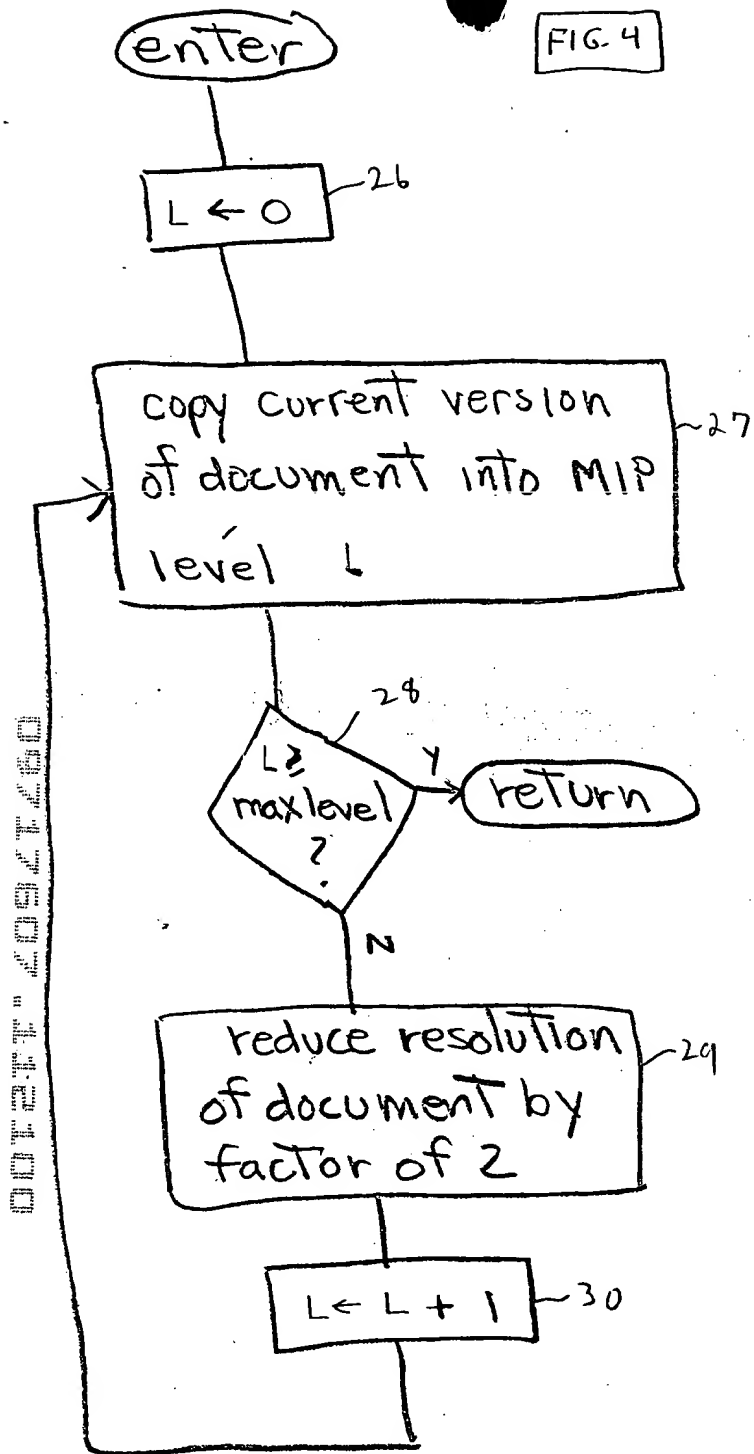 enter
FIG. 4
L ← 0
26
copy current version
of document into MIP
level L
27
28
L ≥
maxlevel
?
Y
return
N
reduce resolution
of document by
factor of 2
29
L ← L + 1
30
09717607.112100